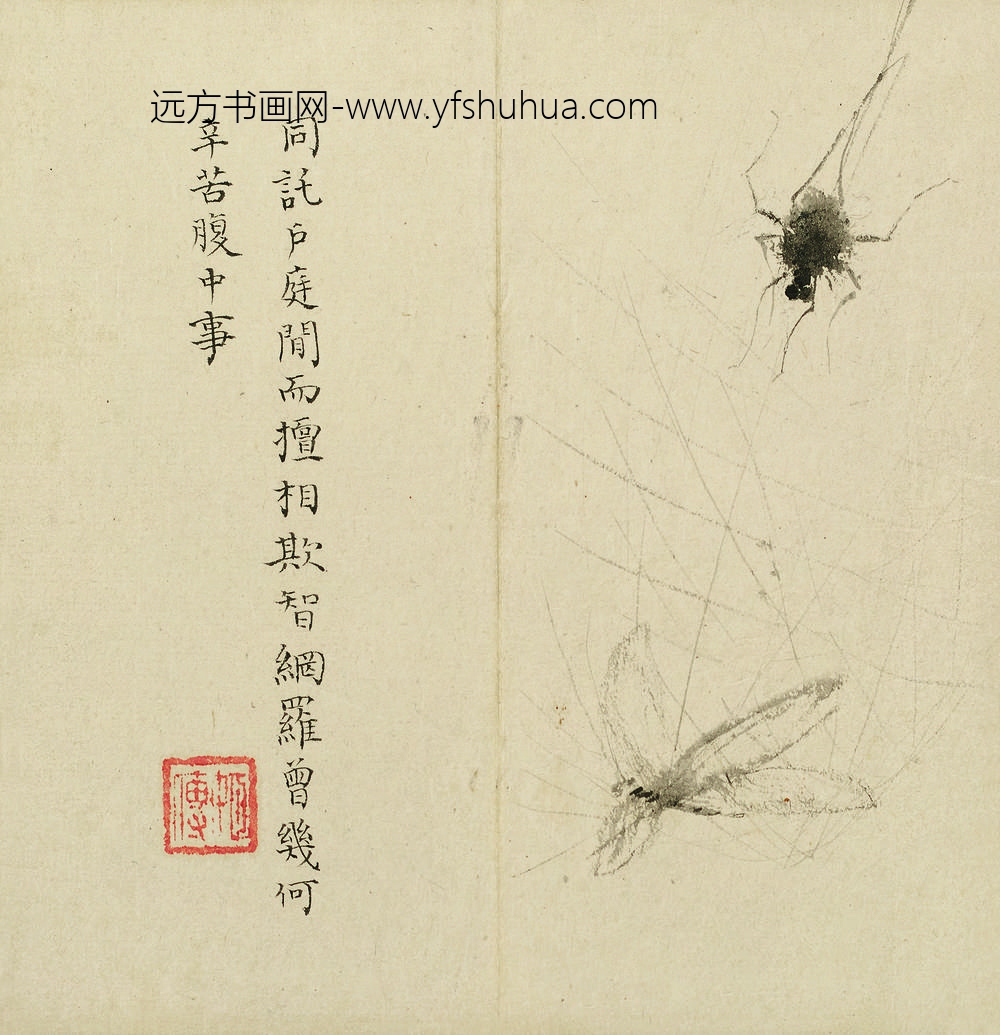 远方书画网-www.yfshuhua.com
同託戶庭間而擅相欺智網羅曾幾何
辛苦腹中事